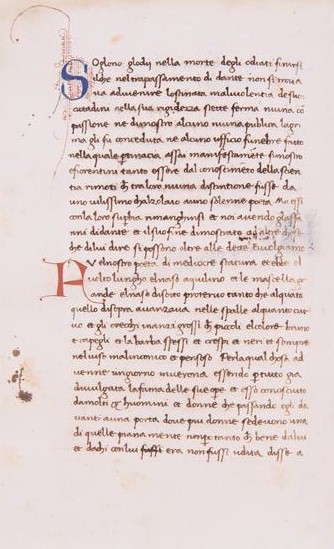 Soglono glodij nella morte degli odiati finirsi
ilche nel trapassamento di dante non si trova
va advenire losinata malivolentia de suoi
cittadini nella sua rigidezza stette ferma niuna co
passione ne dimostro alcuno niuna publica lagri
ma gli fu conceduta ne alcuno ufficio funebre fatto
nella quale pertinacia assai manifestamete si mostro
e fiorentini tanto essere dal conoscimeto della scien
tia rimoti ch tra loro niuna distintione fusse da
uno vilissimo chalzolaio auno solenne poeta Ma essi
con la loro supbia rimanghinsi et noi avendo gla affa
nni di dante et il suo fine dimostrato ad altre chose
che di lui dire si possono oltre alle dette ci volgiamo
Fu el nostro poeta di mediocre statura et ebbe el
volto lungho el naso aquilino et le mascella gr
ande el nasο disotto protervo tanto che alquato
quello disopra avanzava nelle spalle alquanto cur
vo et gli occhi innanzi grossi ch piccoli el colore bruno
e capegli et la barba spessi et crespi et neri et sempre
nel viso malinconico et pensoso Per la qual chosa ad
venne un giorno in verona essendo p tutto gia
divulgata la fama delle sue ope et esso conosciuto
da molti et huomini et donne che passando egli da
vanti auna porta dove piu donne sedevono una
di quelle piana mente non po tanto ch bene da lui
et da chi con lui era non fussi udita disse a